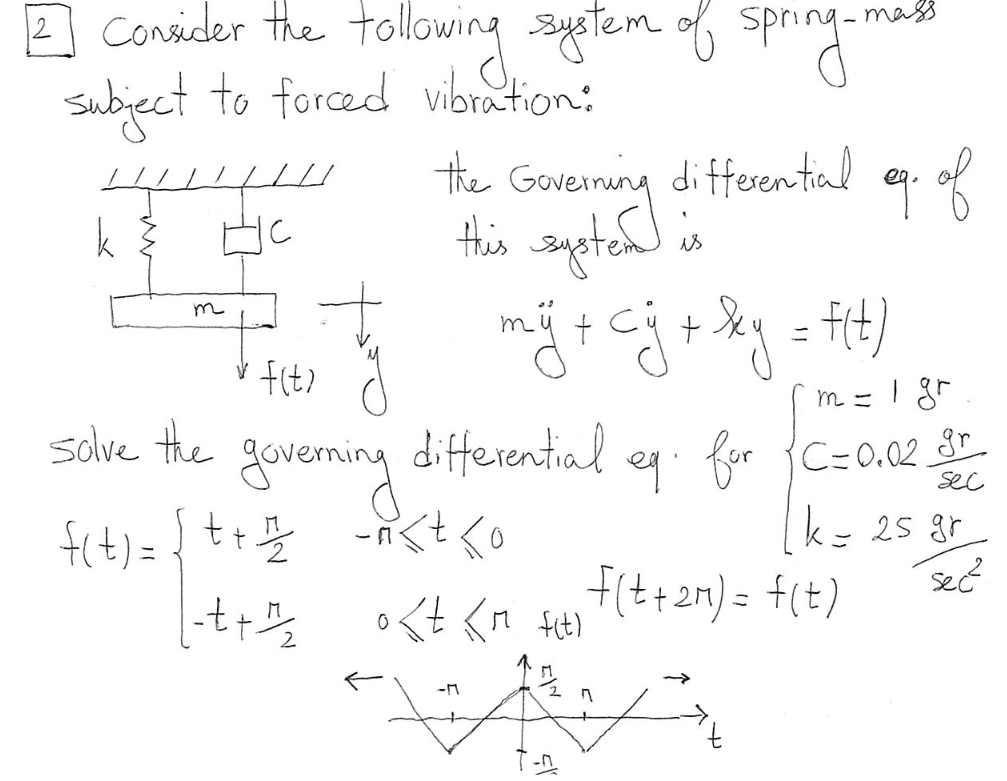 2 Consider the following system of spring-mass
subject to forced vibration:
the Governing differential eq. of
this system is
k C
m
f(t) y
mÿ + cẏ + ky = f(t)
solve the governing differential eq. for { m = 1 gr
C = 0.02 gr/sec
k = 25 gr/sec²
f(t) = { t + π/2 -π ⩽ t ⩽ 0
-t + π/2 0 ⩽ t ⩽ π f(t+2π) = f(t)
f(t)
π/2
-π π
t
-π/2